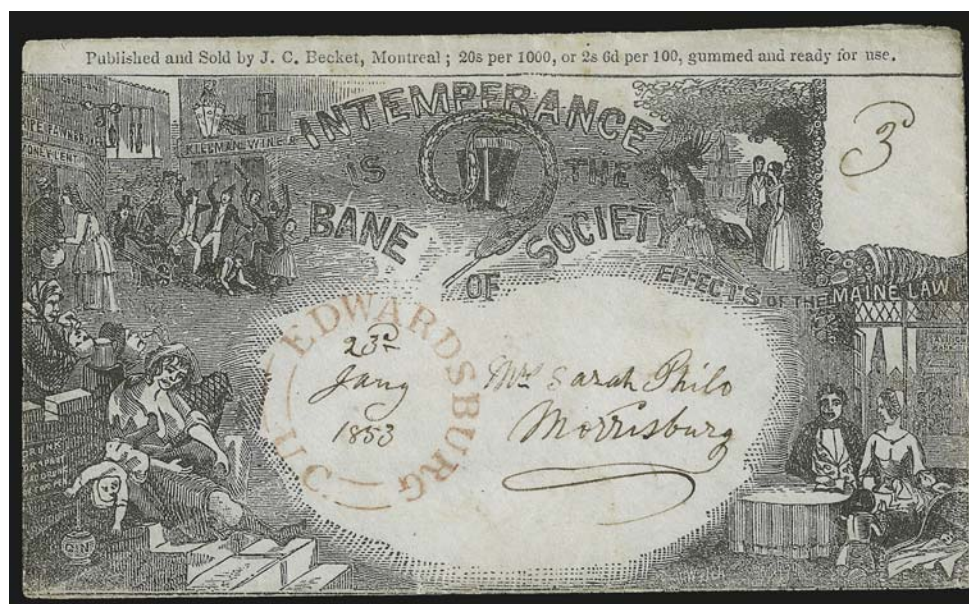 Published and Sold by J. C. Becket, Montreal; 20s per 1000, or 2s 6d per 100, gummed and ready for use.
INTEMPERANCE
IS THE
BANE OF SOCIETY
KILLMAN WINE
MONEY LENT
3d
EFFECTS OF THE MAINE LAW
EDWARDSBURG
U C
23d
Jany
1853
Mrs Sarah Philo
Morrisburg
GIN